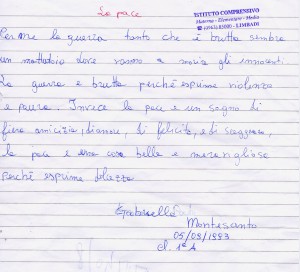 La pace
ISTITUTO COMPRENSIVO
Materna - Elementare - Media
89844 LIMBADI
Per me la guerra tanto che è brutta sembra
un mattatoio dove vanno a morire gli innocenti.
La guerra è brutta perché esprime violenza
e paura. Invece la pace è un sogno di
fiera amicizia, di felicità, e di saggezza,
la pace è una cosa bella e meravigliosa
Perché esprime dolcezza
Gabriella
Montesanto
05/09/1993
cl. 1ª A